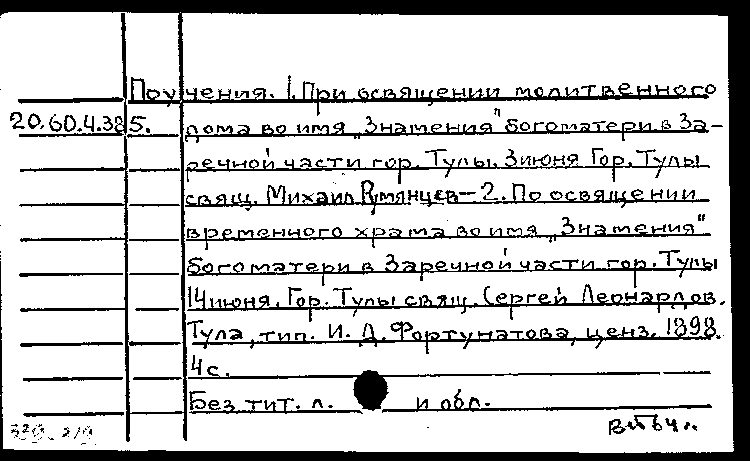 Поучения. 1. При освящении молитвенного
20.60.4.385. дома во имя „Знамения" богоматери в За-
речной части гор. Тулы. 3 июня Гор. Тулы
свящ. Михаил Румянцев – 2. По освящении
временного храма во имя „Знамения"
богоматери в Заречной части гор. Тулы
14 июня. Гор. Тулы свящ. Сергей Леонардов.
Тула, тип. И. Д. Фортунатова, ценз. 1898.
4 с.
Без тит. л. и обл.